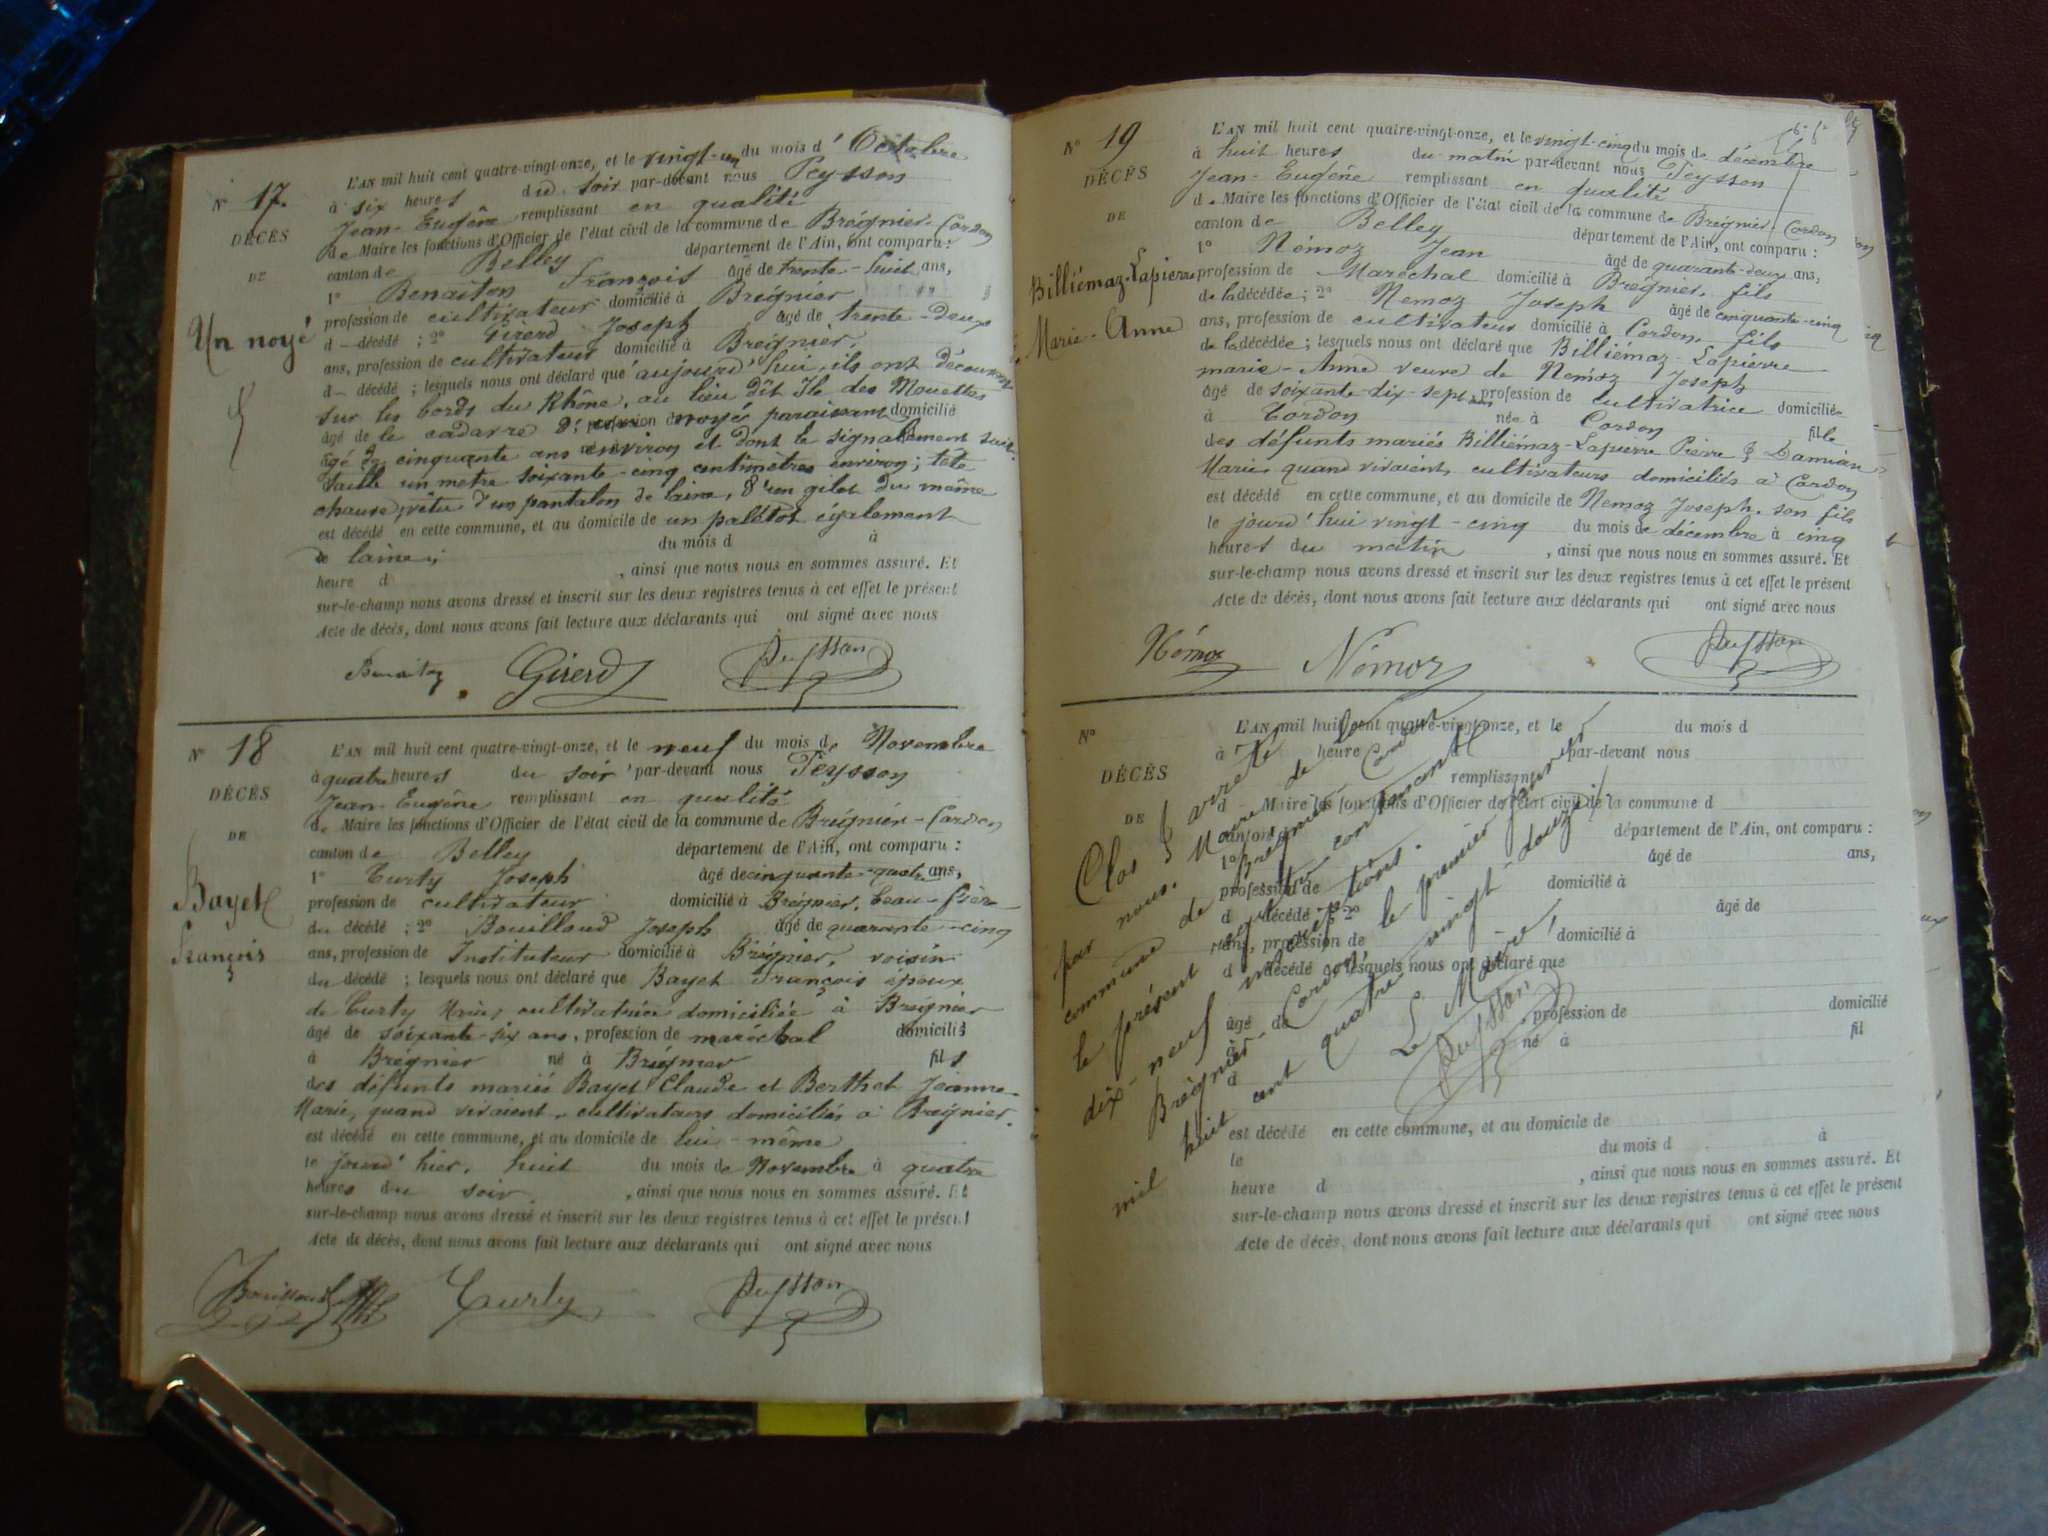 N° 17.
DÉCÈS
DE
Un noyé
L'AN mil huit cent quatre-vingt-onze, et le vingt-un du mois d'Octobre
à six heures du soir par-devant nous Peysson
Jean-Eugène remplissant en qualité
de Maire les fonctions d'Officier de l'état civil de la commune de Brégnier-Cordon
canton de Belley département de l'Ain, ont comparu :
1° Benaiton François âgé de trente-huit ans,
profession de cultivateur domicilié à Brégnier
d décédé ; 2° Girerd Joseph âgé de trente-deux
ans, profession de cultivateur domicilié à Brégnier.
d décédé ; lesquels nous ont déclaré que aujourd'hui, ils ont découvert
sur les bords du Rhône, au lieu dit Ile des Mouettes
âgé de le cadavre d'un profession d noyé paraissant domicilié
âgé de cinquante ans environ et dont le signalement suit:
taille un mètre soixante-cinq centimètres environ; tête
chauve, vêtu d'un pantalon de laine, d'un gilet du même
est décédé en cette commune, et au domicile de un palétot également
de laine; du mois d à
heure d , ainsi que nous nous en sommes assuré. Et
sur-le-champ nous avons dressé et inscrit sur les deux registres tenus à cet effet le présent
Acte de décès, dont nous avons fait lecture aux déclarants qui ont signé avec nous
Benaiton Girerd Peysson
N° 18
DÉCÈS
DE
Bayet
François
L'AN mil huit cent quatre-vingt-onze, et le neuf du mois de Novembre
à quatre heures du soir par-devant nous Peysson
Jean-Eugène remplissant en qualité
de Maire les fonctions d'Officier de l'état civil de la commune de Brégnier-Cordon
canton de Belley département de l'Ain, ont comparu :
1° Curty Joseph âgé de cinquante-quatre ans,
profession de cultivateur domicilié à Brégnier, beau-frère
du décédé ; 2° Bouilloud Joseph âgé de quarante-cinq
ans, profession de Instituteur domicilié à Brégnier, voisin
du décédé ; lesquels nous ont déclaré que Bayet François époux
de Curty Marie, cultivatrice domiciliée à Brégnier
âgé de soixante-six ans, profession de maréchal domicilié
à Brégnier né à Brégnier fils
des défunts mariés Bayet Claude et Berthet Jeanne-
Marie, quand vivaient, cultivateurs domiciliés à Brégnier.
est décédé en cette commune, et au domicile de lui-même
le jourd'hier, huit du mois de Novembre à quatre
heures du soir. , ainsi que nous nous en sommes assuré. Et
sur-le-champ nous avons dressé et inscrit sur les deux registres tenus à cet effet le présent
Acte de décès, dont nous avons fait lecture aux déclarants qui ont signé avec nous
Bouilloud Curty Peysson
N° 19
DÉCÈS
DE
Billiémaz-Lapierre
Marie-Anne
L'AN mil huit cent quatre-vingt-onze, et le vingt-cinq du mois de décembre
à huit heures du matin par-devant nous Peysson
Jean-Eugène remplissant en qualité
de Maire les fonctions d'Officier de l'état civil de la commune de Brégnier-Cordon
canton de Belley département de l'Ain, ont comparu :
1° Némoz Jean âgé de quarante-deux ans,
profession de Maréchal domicilié à Brégnier, fils
de la décédée ; 2° Némoz Joseph âgé de cinquante-cinq
ans, profession de cultivateur domicilié à Cordon, fils
de la décédée ; lesquels nous ont déclaré que Billiémaz-Lapierre
Marie-Anne veuve de Némoz Joseph
âgé de soixante-dix-sept ans profession de cultivatrice domiciliée
à Cordon née à Cordon fille
des défunts mariés Billiémaz-Lapierre Pierre & Damian
Marie, quand vivaient, cultivateurs domiciliés à Cordon
est décédé en cette commune, et au domicile de Némoz Joseph, son fils
le jourd'hui vingt-cinq du mois de décembre à cinq
heures du matin , ainsi que nous nous en sommes assuré. Et
sur-le-champ nous avons dressé et inscrit sur les deux registres tenus à cet effet le présent
Acte de décès, dont nous avons fait lecture aux déclarants qui ont signé avec nous
Némoz Némoz Peysson
N°
DÉCÈS
DE
L'AN mil huit cent quatre-vingt-onze, et le du mois d
à heure d par-devant nous
remplissant
d Maire les fonctions d'Officier de l'état civil de la commune d
canton d département de l'Ain, ont comparu :
1° âgé de ans,
profession de domicilié à
d décédé ; 2° âgé de
ans, profession de domicilié à
d décédé ; lesquels nous ont déclaré que
âgé de profession de domicilié
à né à fil
d
est décédé en cette commune, et au domicile de
le du mois d à
heure d , ainsi que nous nous en sommes assuré. Et
sur-le-champ nous avons dressé et inscrit sur les deux registres tenus à cet effet le présent
Acte de décès, dont nous avons fait lecture aux déclarants qui ont signé avec nous
Clos & arrêté
par nous. Maire de la
commune de Brégnier-Cordon
le présent registre contenant
dix-neuf inscriptions.
Brégnier-Cordon, le premier janvier
mil huit cent quatre-vingt-douze.
Le Maire,
Peysson